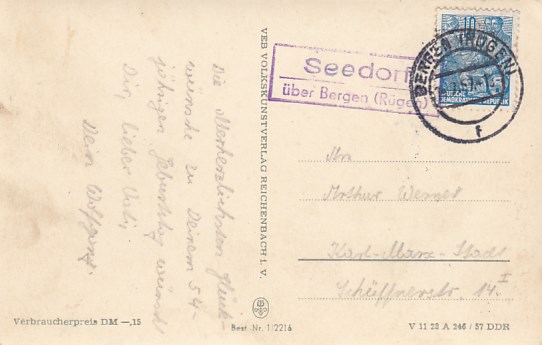 Die Allerherzlichsten Glück-
wünsche zu Deinem 54-
jährigen Geburtstag wünscht
Dir, lieber
Dein Wolfgang.
VEB VOLKSKUNSTVERLAG REICHENBACH I. V.
Seedorf
über Bergen (Rügen)
BERGEN (RÜGEN)
f
10
DEUTSCHE
DEMOKRATISCHE REPUBLIK
Arthur
Karl-Marx-Stadt
14 I
Verbraucherpreis DM –,15
Best. Nr. 1/2216
V 11 28 A 246 / 57 DDR